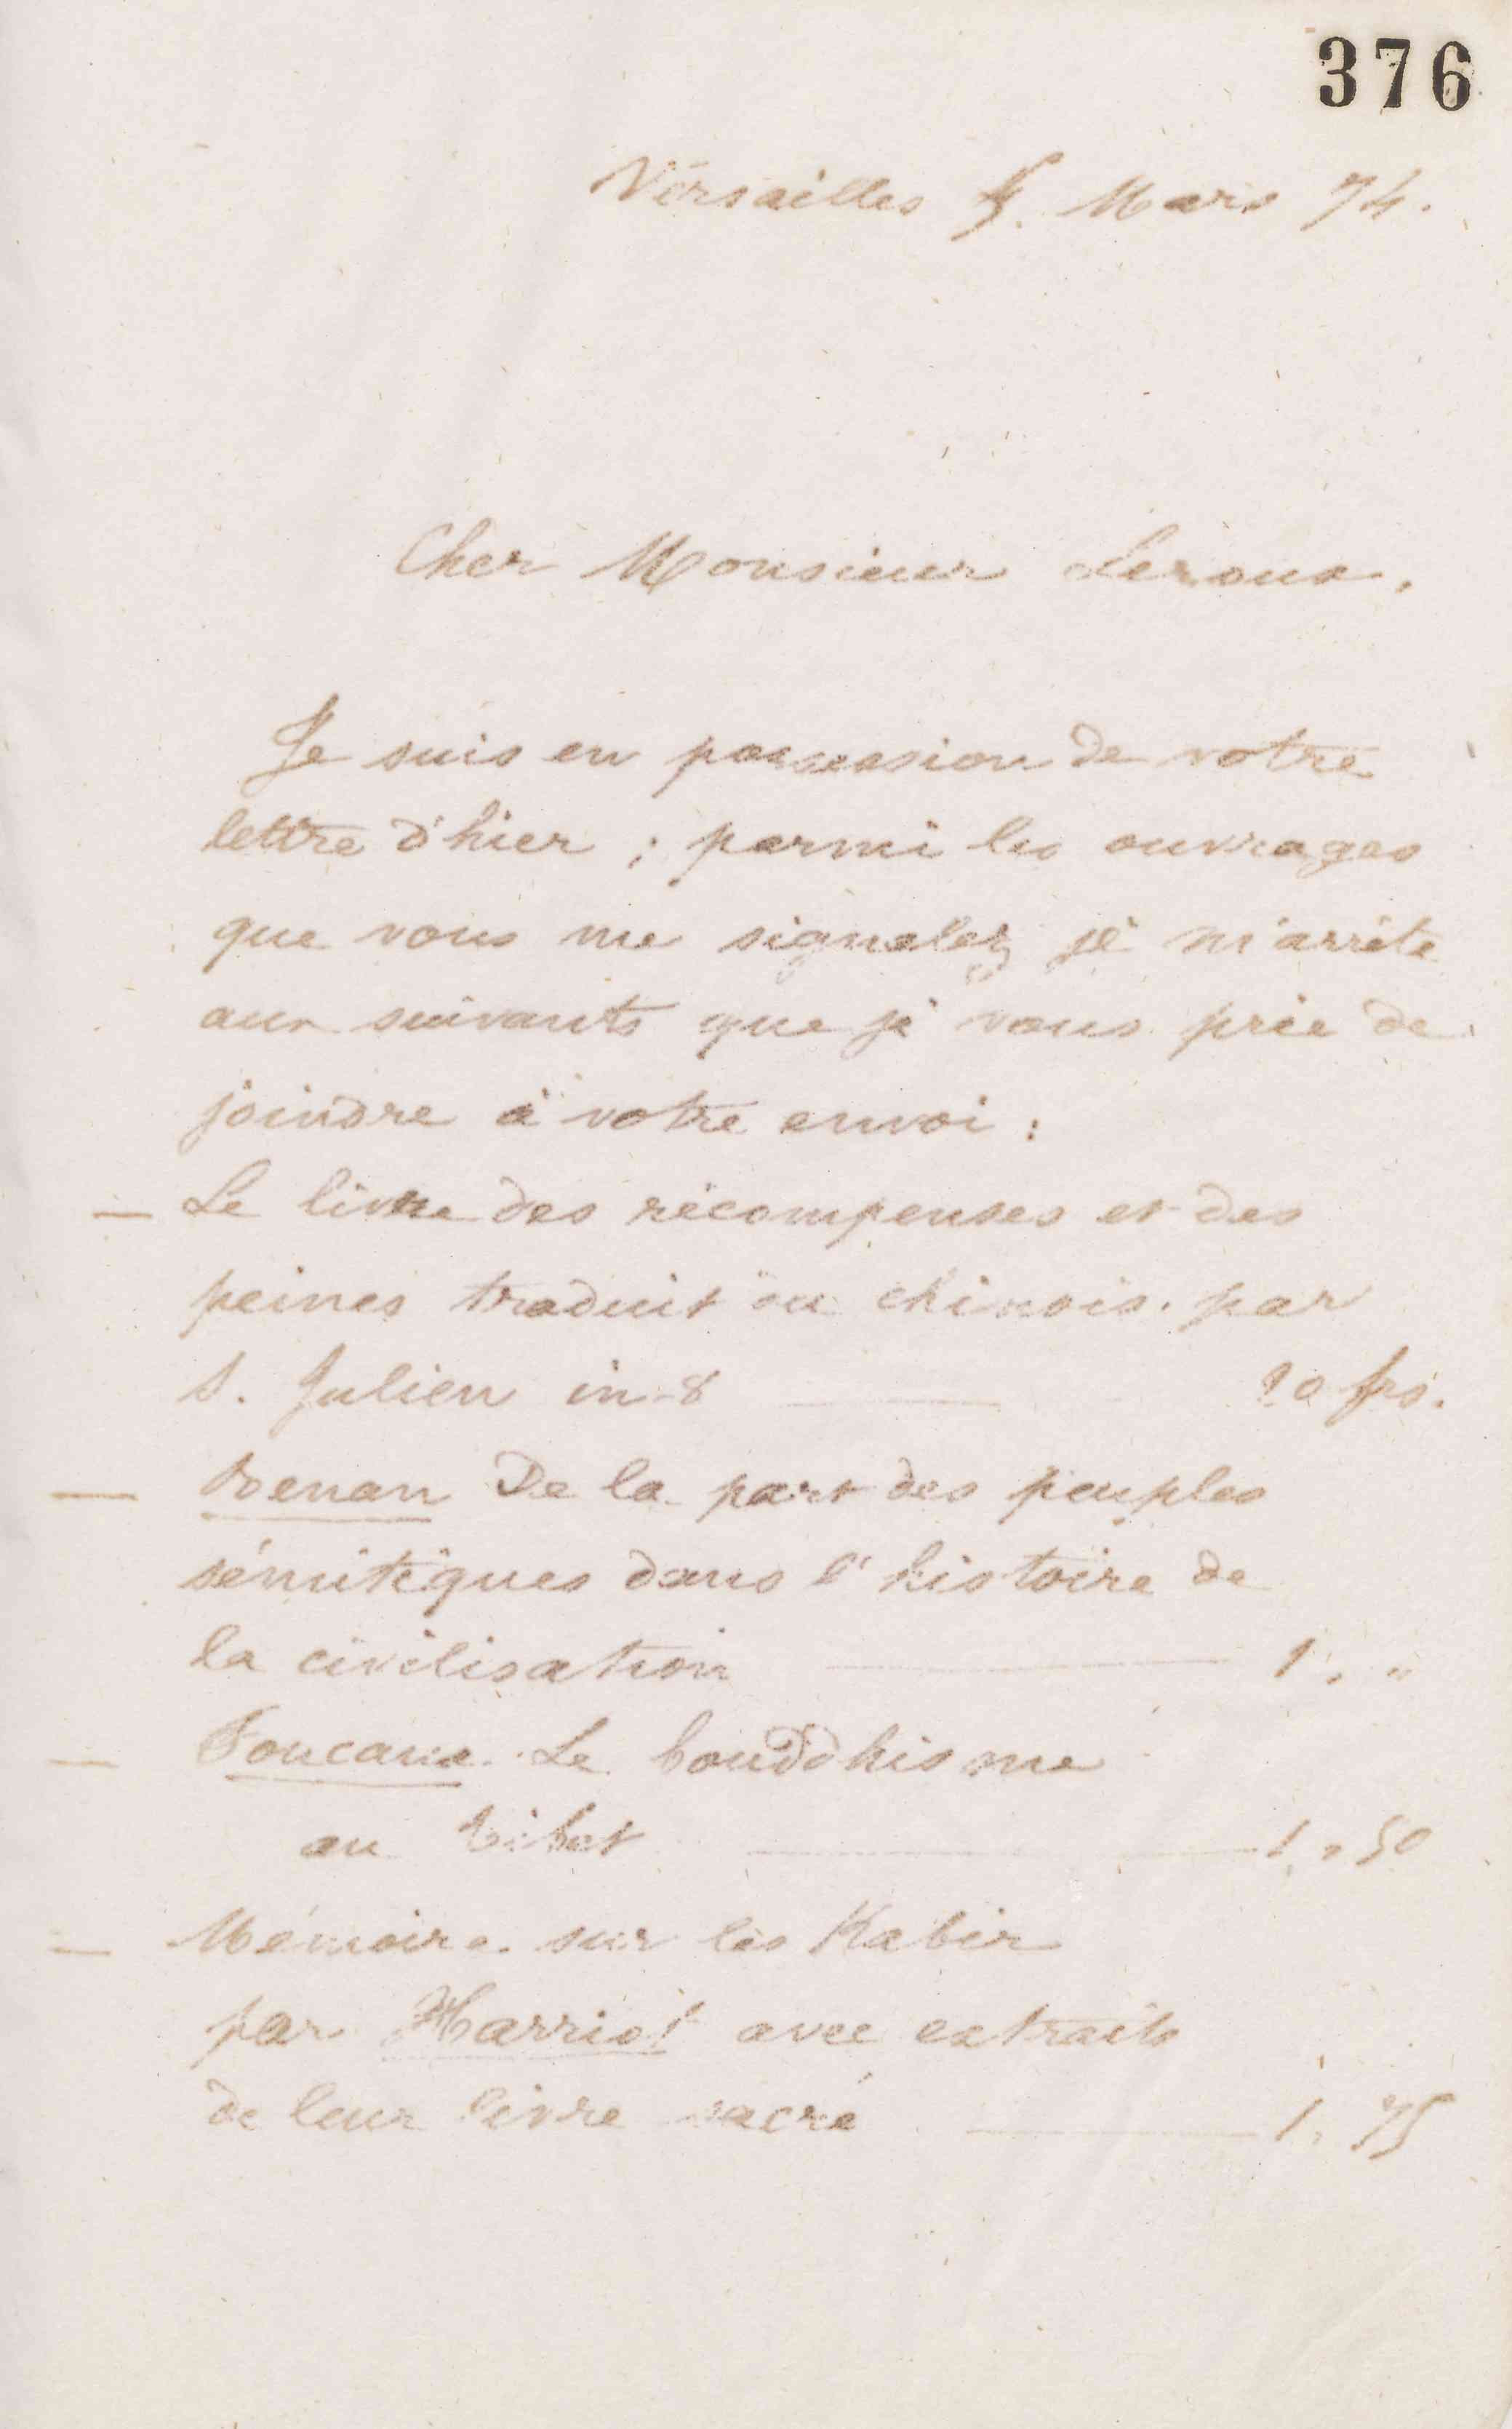 376
Versailles 5. Mars 74.
Cher Monsieur Leroux,
Je suis en possession de votre
lettre d'hier ; parmi les ouvrages
que vous me signalez je m'arrête
aux suivants que je vous prie de
joindre à votre envoi :
— Le livre des récompenses et des
peines traduit du chinois par
S. Julien in-8 — frs.
— Renan De la part des peuples
sémitiques dans l'histoire de
la civilisation — 1. "
— Foucaux. Le bouddhisme
au Tibet — 1, 50
— Mémoire sur les Kabir
par Harriot avec extraits
de leur livre sacré — 1. 75